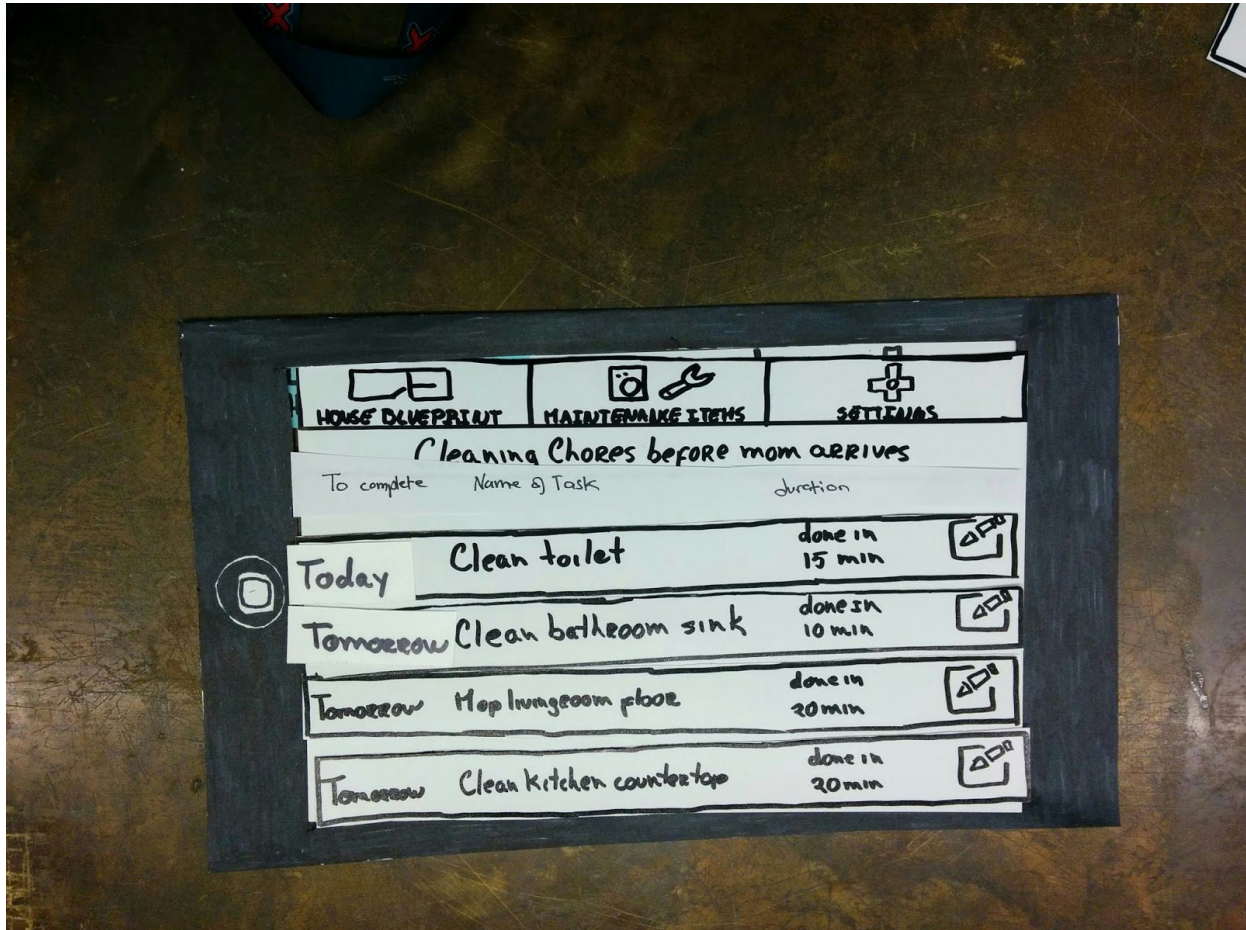 HOUSE BLUEPRINT MAINTENANCE ITEMS SETTINGS
Cleaning Chores before mom arrives
To complete Name of Task duration
Today Clean toilet done in
15 min
Tomorrow Clean bathroom sink done in
10 min
Tomorrow Mop livingroom floor done in
20 min
Tomorrow Clean Kitchen countertop done in
20 min